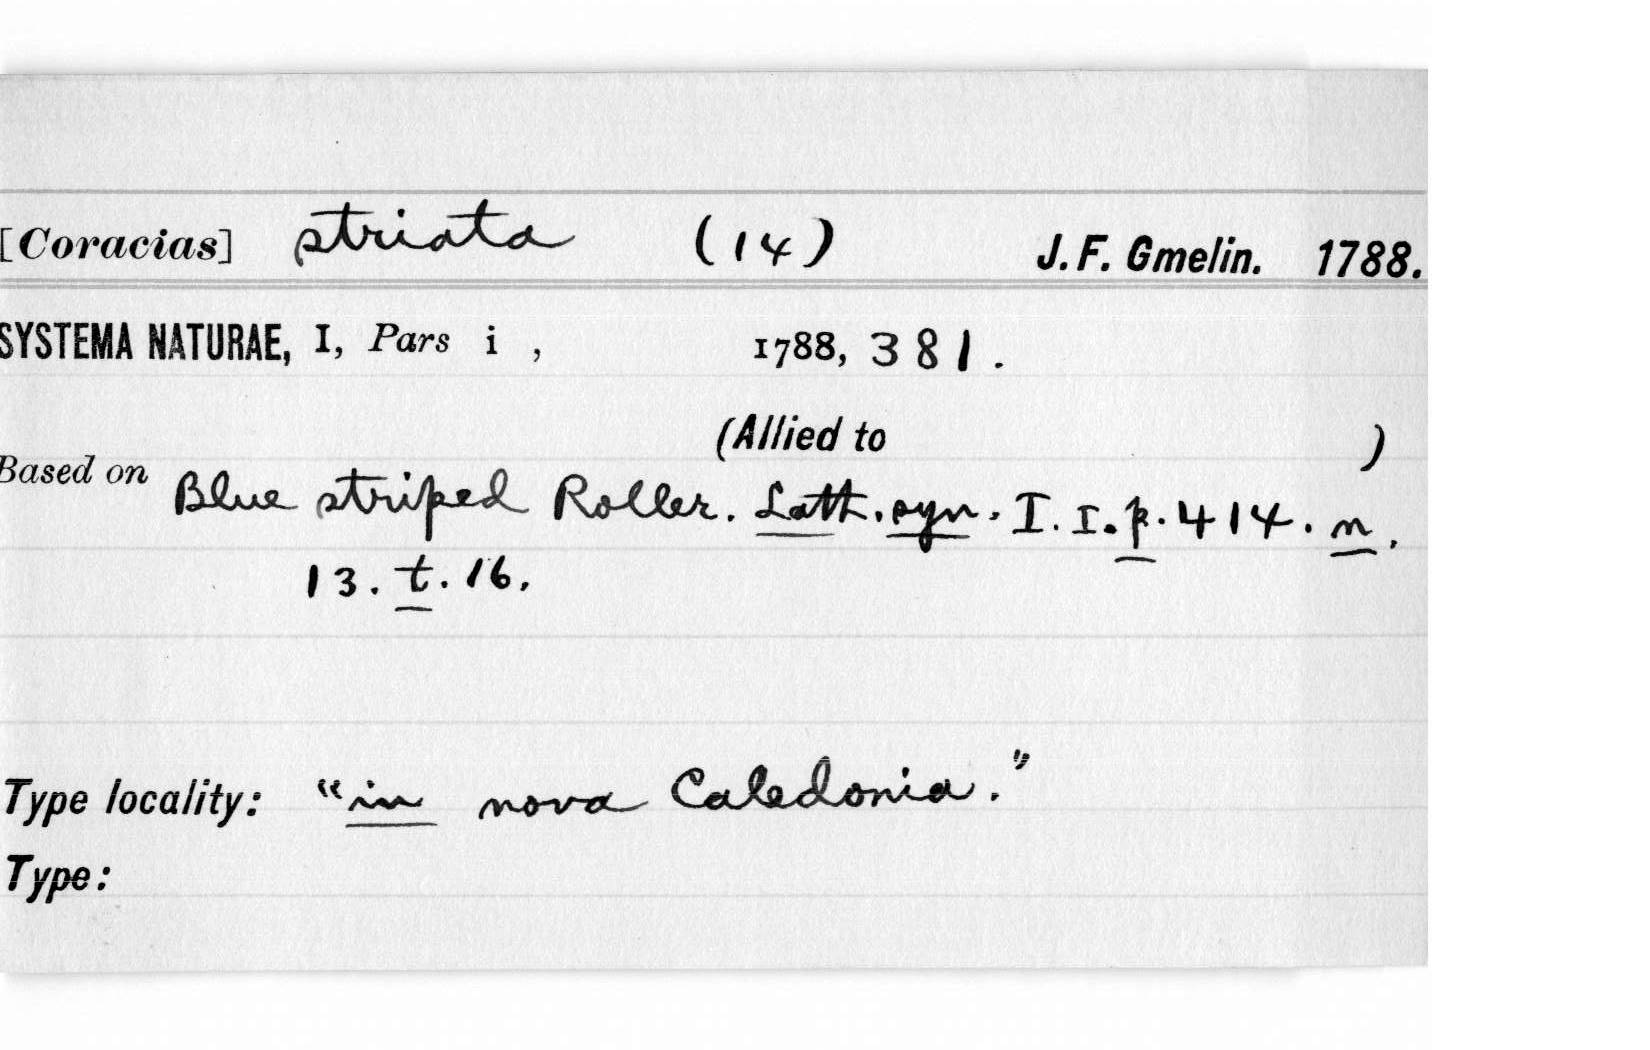 [Coracias] striata (14) J. F. Gmelin. 1788.
SYSTEMA NATURAE, I, Pars i , 1788, 381.
(Allied to )
Based on Blue striped Roller. Lath. syn. I. I. p. 414. n.
13. t. 16.
Type locality: "in nova Caledonia."
Type: